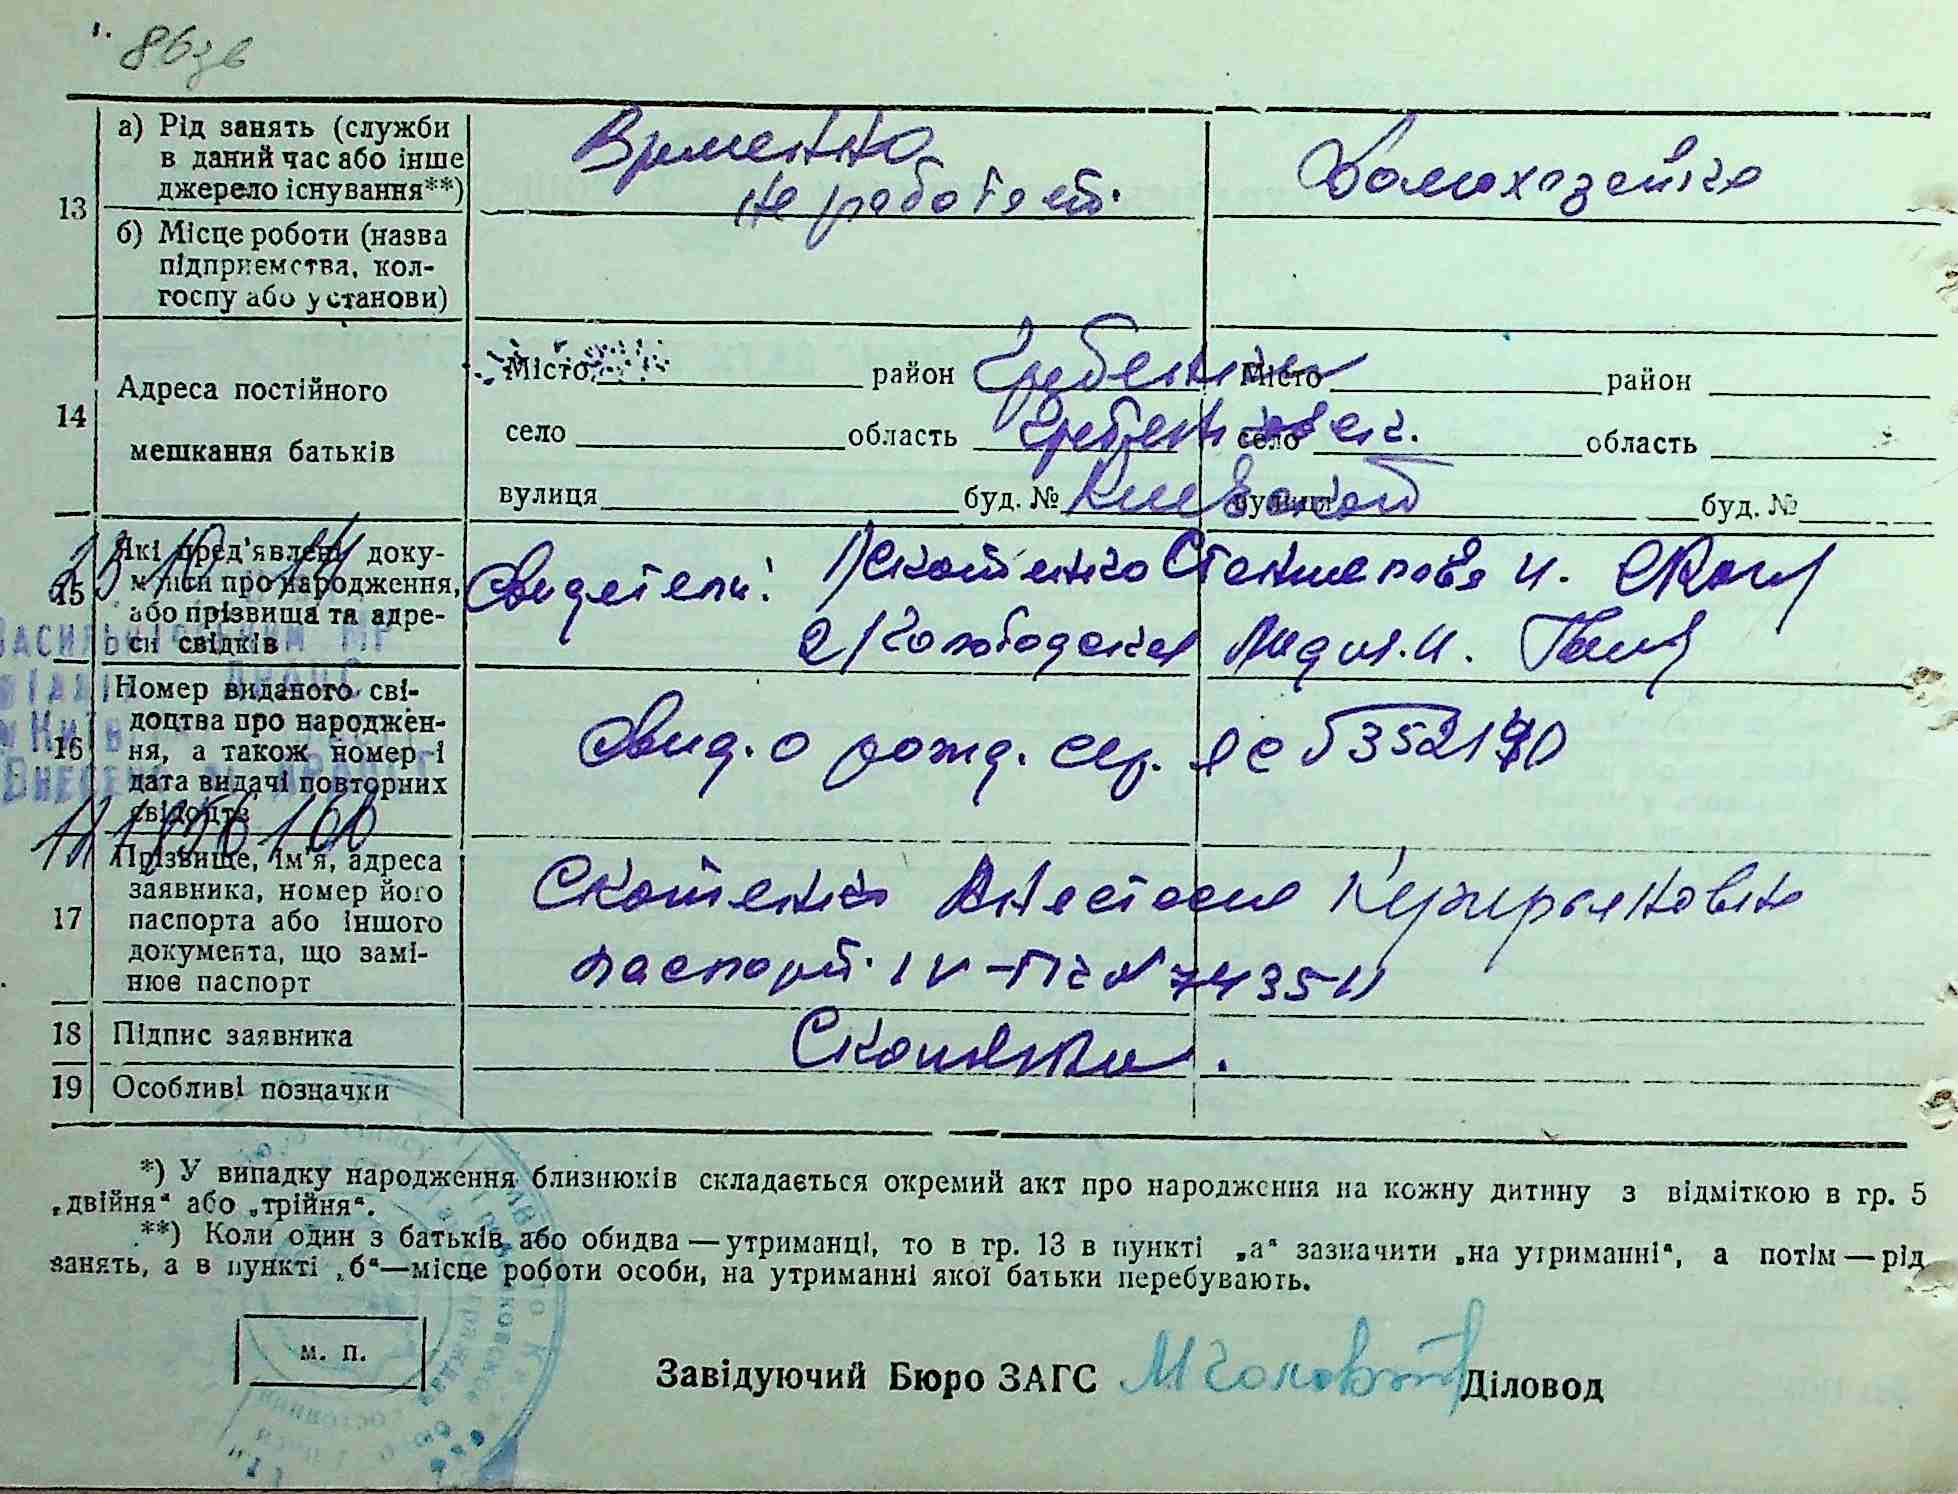 86 зв
13 а) Рід занять (служби
в даний час або інше
джерело існування**)
Временно
не работает.
Домохозяйка
б) Місце роботи (назва
підприємства, кол-
госпу або установи)
14 Адреса постійного
мешкання батьків
Місто район Гребенки Місто район
село область Гребенковск. село область
вулиця буд. № Киевской вулиця буд. №
15 Які пред'явлені доку-
менти про народження,
або прізвища та адре-
си свідків
Свидетели: 1/ Скотенко И.
2/ Лидия. И.
16 Номер виданого сві-
доцтва про народжен-
ня, а також номер і
дата видачі повторних
свідоцтв
Свид. о рожд. сер.
17 Прізвище, ім'я, адреса
заявника, номер його
паспорта або іншого
документа, що замі-
нює паспорт
Скотенко Анастасия
паспорт. IV-ПС № 743511
18 Підпис заявника
Скотенко.
19 Особливі позначки
*) У випадку народження близнюків складається окремий акт про народження на кожну дитину з відміткою в гр. 5
„двійня“ або „трійня“.
**) Коли один з батьків або обидва — утриманці, то в гр. 13 в пункті „а“ зазначити „на утриманні“, а потім — рід
занять, а в пункті „б“—місце роботи особи, на утриманні якої батьки перебувають.
м. п.
Завідуючий Бюро ЗАГС Діловод